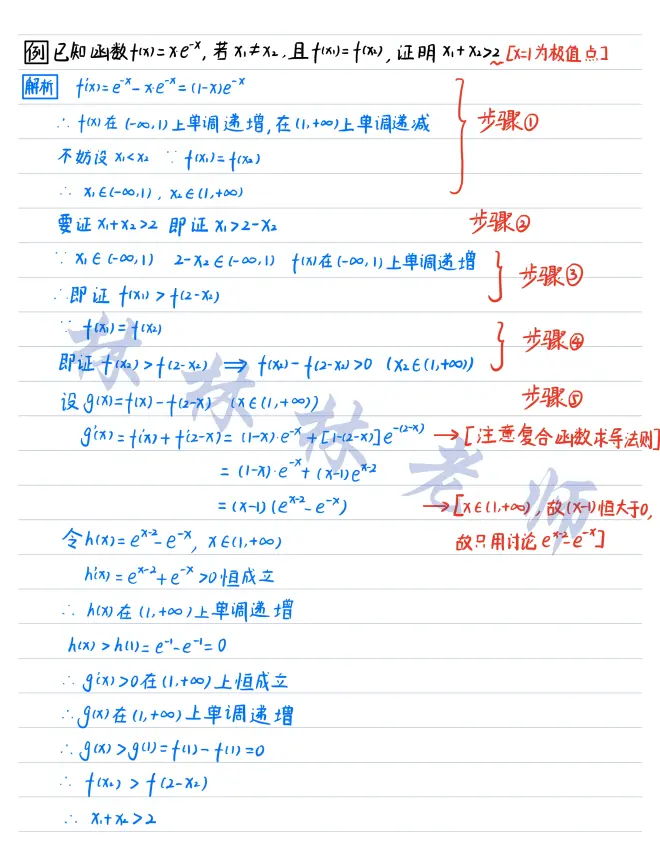 例 已知函数f(x)=xe^{-x}, 若x₁≠x₂, 且f(x₁)=f(x₂), 证明x₁+x₂>2 [x=1为极值点]
解析 f'(x)=e^{-x}-x·e^{-x}=(1-x)e^{-x}
∴ f(x)在(-∞,1)上单调递增,在(1,+∞)上单调递减 步骤①
不妨设x₁<x₂ ∵ f(x₁)=f(x₂)
∴ x₁∈(-∞,1), x₂∈(1,+∞)
要证x₁+x₂>2 即证x₁>2-x₂ 步骤②
∵ x₁∈(-∞,1) 2-x₂∈(-∞,1) f(x)在(-∞,1)上单调递增 步骤③
∴即证 f(x₁)>f(2-x₂)
∵ f(x₁)=f(x₂) 步骤④
即证f(x₂)>f(2-x₂) ⟹ f(x₂)-f(2-x₂)>0 (x₂∈(1,+∞))
设g(x)=f(x)-f(2-x) (x∈(1,+∞)) 步骤⑤
g'(x)=f'(x)+f'(2-x)=(1-x)·e^{-x}+[1-(2-x)]e^{-(2-x)} →[注意复合函数求导法则]
=(1-x)·e^{-x}+(x-1)e^{x-2}
=(x-1)(e^{x-2}-e^{-x}) →[x∈(1,+∞), 故(x-1)恒大于0,
令h(x)=e^{x-2}-e^{-x}, x∈(1,+∞) 故只用讨论e^{x-2}-e^{-x}]
h'(x)=e^{x-2}+e^{-x}>0恒成立
∴ h(x)在(1,+∞)上单调递增
h(x)>h(1)=e^{-1}-e^{-1}=0
∴ g'(x)>0在(1,+∞)上恒成立
∴ g(x)在(1,+∞)上单调递增
∴ g(x)>g(1)=f(1)-f(1)=0
∴ f(x₂)>f(2-x₂)
∴ x₁+x₂>2
林林林老师